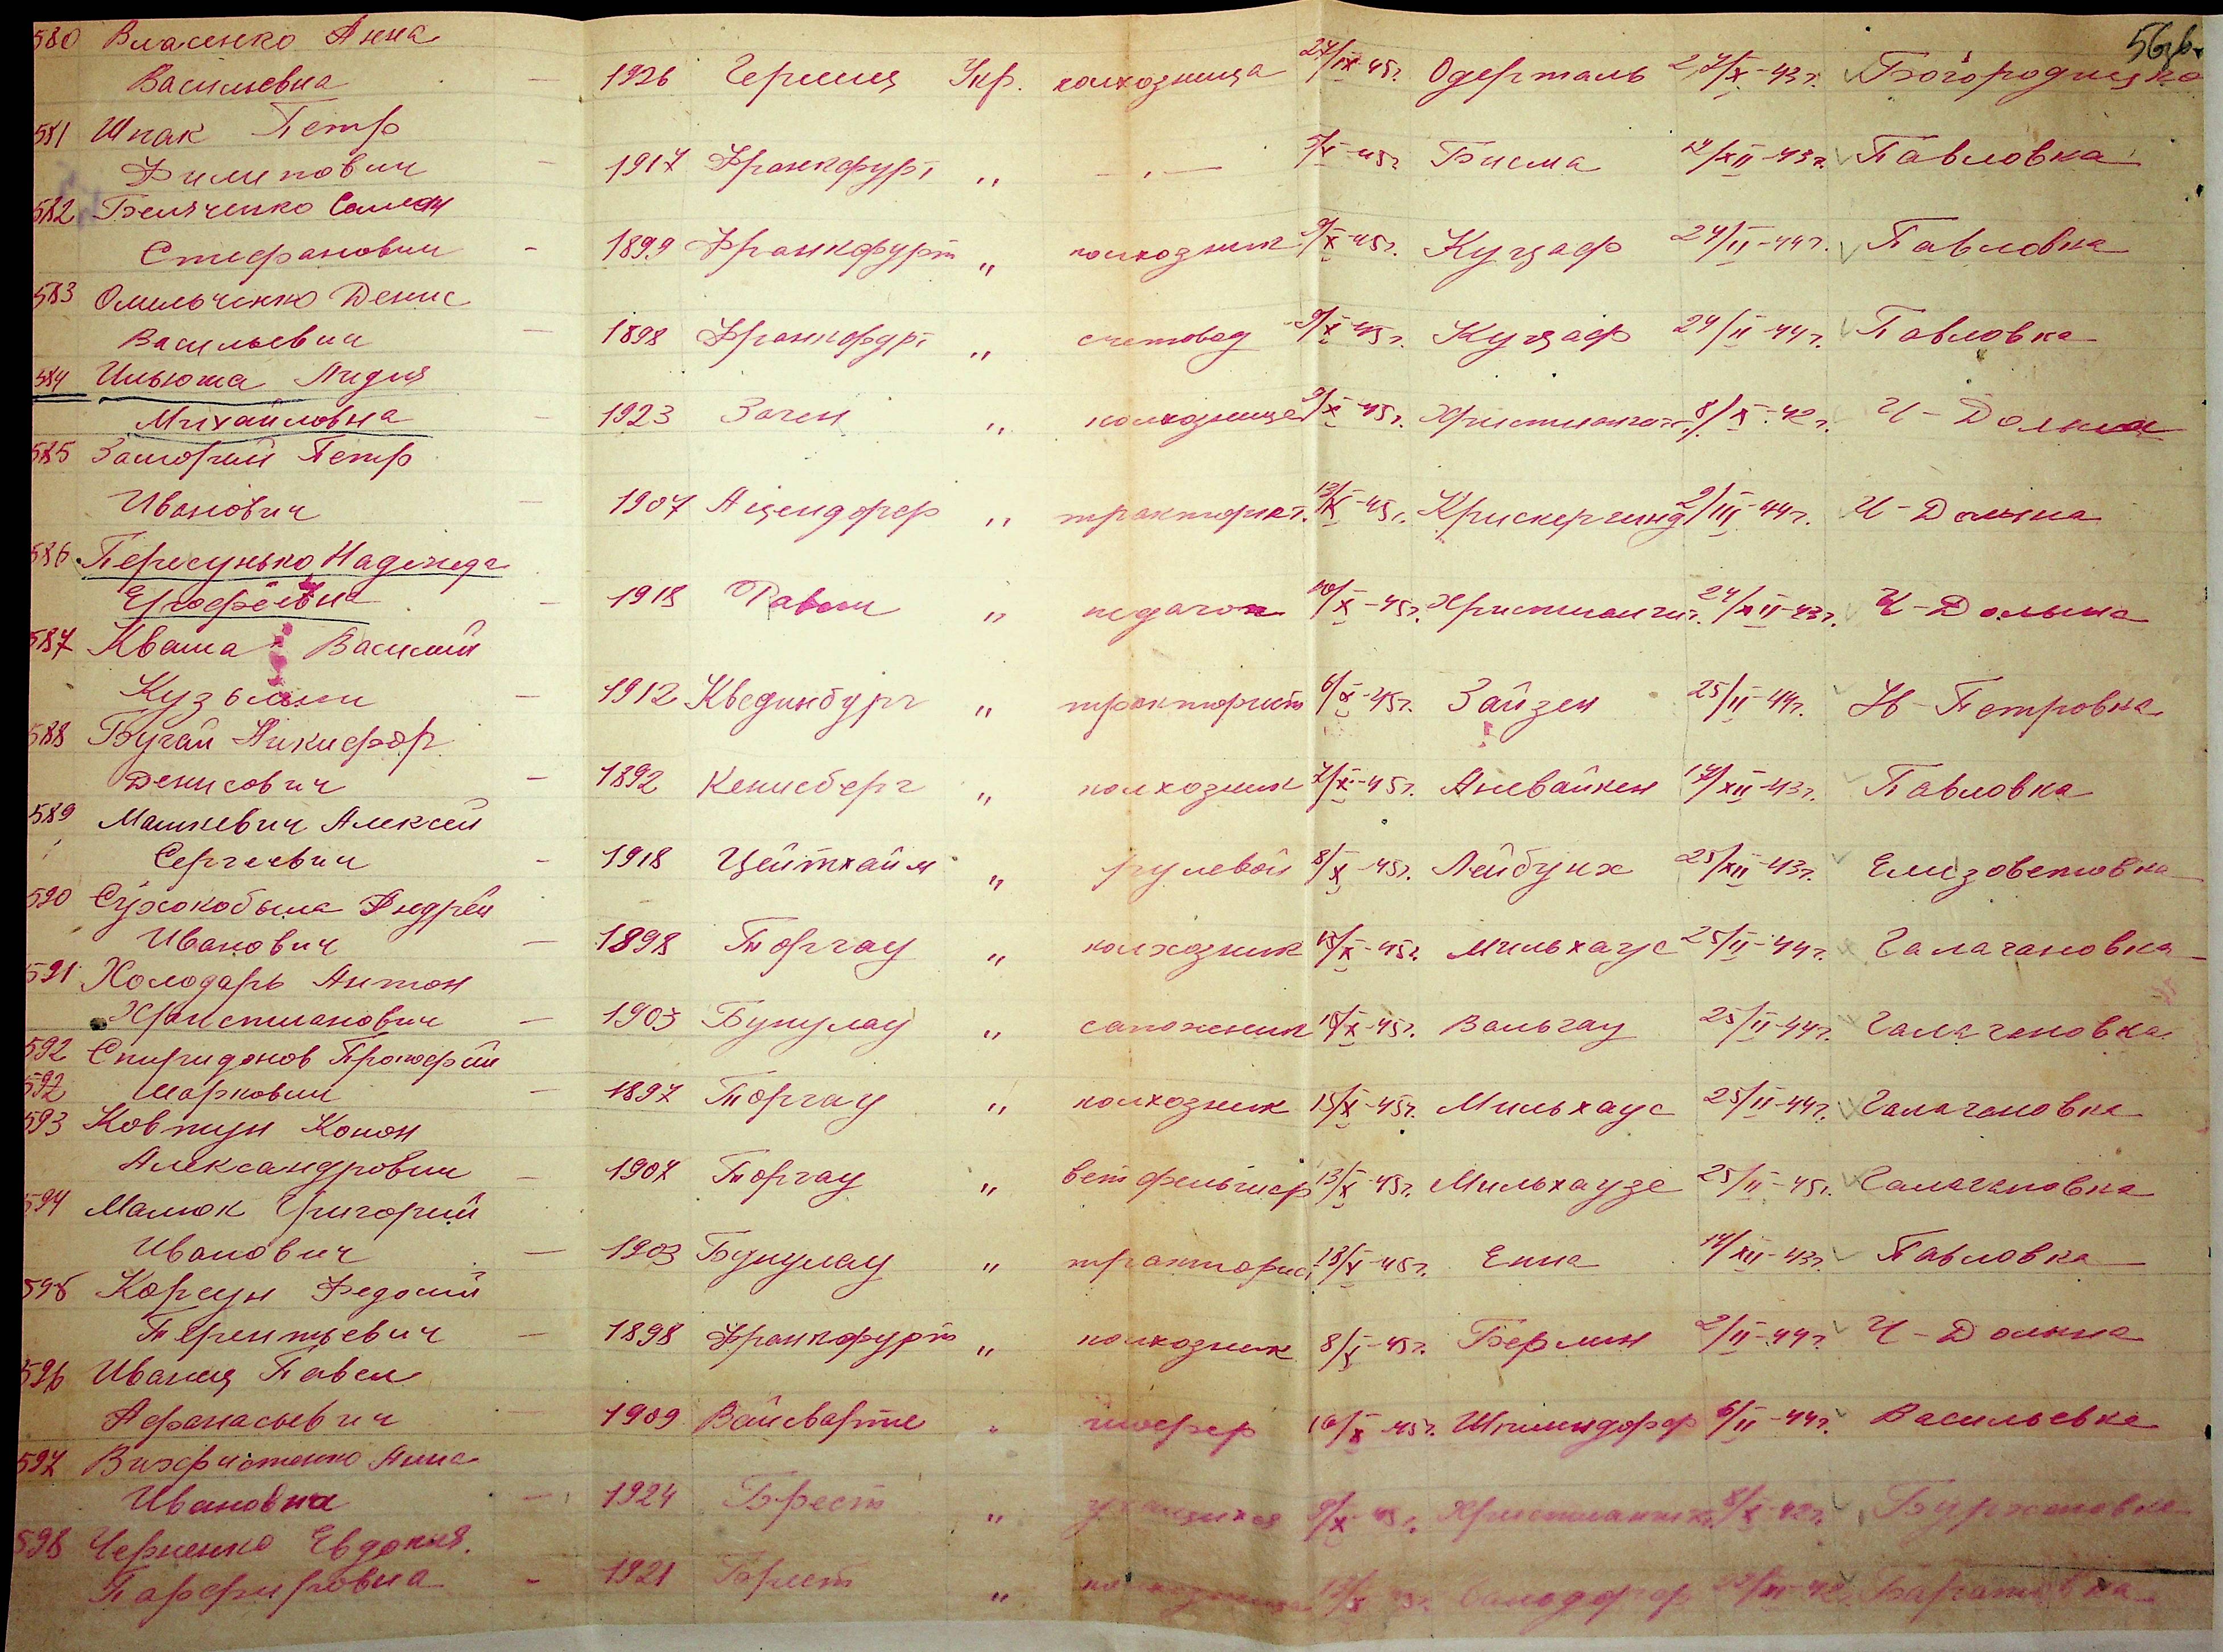 56зв.
580 Власенко Анна
Васильевна — 1926 Гермец Укр. колхозница 27/IX-45г. Одерталь 27/X-43г. Богородицка
581 Шпак Петр
Филипович — 1917 Франкфурт " —"— 5/X-45г. Бисма 14/XII-43г. Павловка
582 Беляченко Семен
Стефанович — 1899 Франкфурт " колхозник 9/X-45г. Куцдаф 24/II-44г. Павловка
583 Омельченко Денис
Васильевич — 1898 Франкфурт " счетовод 9/X-45г. Куцдаф 24/II-44г. Павловка
584 Ильюша Лидия
Михайловна — 1923 Зачен " колхозница 9/X-45г. 8/X-42г. Ч-Долина
585 Петр
Иванович — 1907 Ацендорф " тракторист. 13/X-45г. 2/III-44г. Ч-Долина
586 Пересунько Надежда
— 1918 " педагог 10/X-45г. 24/XII-43г. Ч-Долина
587 Кваша Василий
Кузьмич — 1912 Кведлинбург " тракторист 6/X-45г. Зайзен 25/II-44г. Н-Петровка
588 Бугай Никифор
Денисович — 1892 Кенисберг " колхозник 7/X-45г. Анвайкен 14/XII-43г. Павловка
589 Машкевич Алексей
Сергеевич — 1918 Цейтхайм " рулевой 8/X-45г. Лейбунх 25/XII-43г. Елизоветовка
590 Сухокобыла Андрей
Иванович — 1898 Торгау " колхозник 15/X-45г. Мильхаус 25/II-44г. Галагановка
591 Холодарь Антон
Христианович — 1903 Бунулау " сапожник 18/X-45г. Вальгау 25/II-44г. Галагановка
592 Спиридонов Прокофий
592 Маркович — 1897 Торгау " колхозник 15/X-45г. Мильхаус 25/II-44г. Галагановка
593 Ковтун Конон
Александрович — 1907 Торгау " ветфельшер 13/X-45г. Мильхаузе 25/II-45г. Галагановка
594 Малюк Григорий
Иванович — 1903 Бунулау " тракторист 18/X-45г. Енна 14/XII-43г. Павловка
595 Корсун Федосий
Терентьевич — 1898 Франкфурт " колхозник 8/X-45г. Берлин 2/II-44г. Ч-Долина
596 Иванец Павел
Афанасьевич — 1909 Вайсварте " шофер 16/X-45г. Шпилендорф 6/II-44г. Васильевка
597 Вихристенко Анна
Ивановна — 1924 Брест " учащихся 9/X-45г. 8/X-42г. Бурхановка
598 Черненко Евдокия
Парфировна — 1921 Брест " колхозница Баратовка